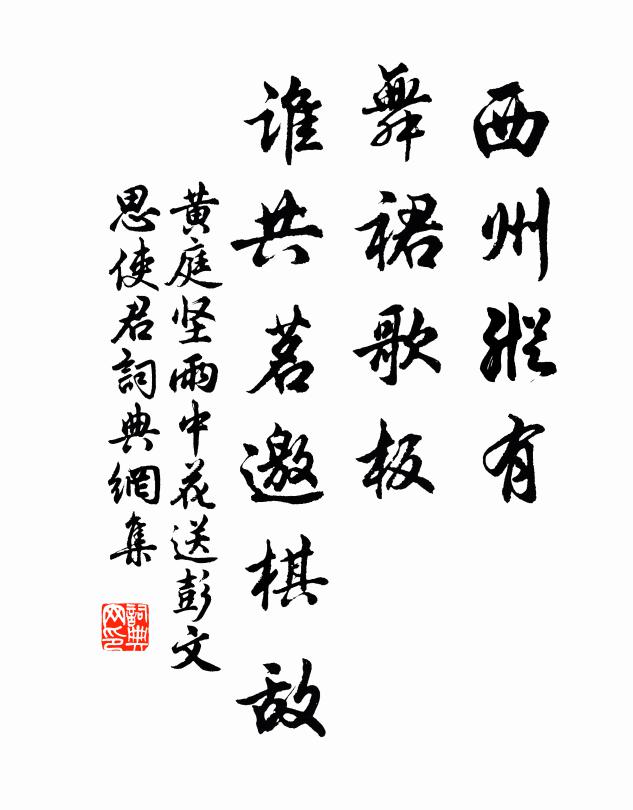 西州縱有
舞裙歌板
誰共茗邀棋敌
黄庭坚雨中花送彭文
思使君詞典網集
詞典网印